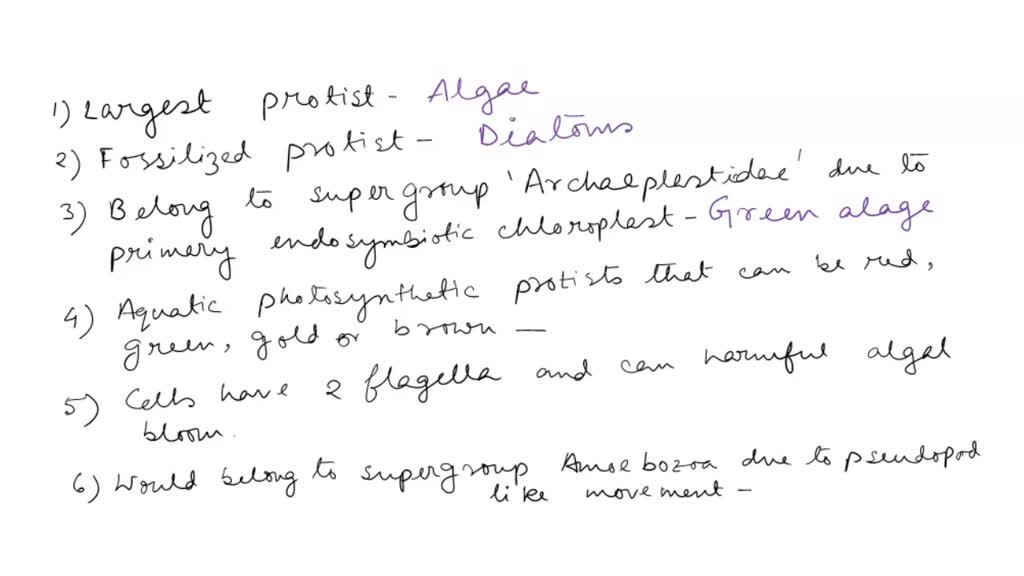 1) Largest protist - Algae
2) Fossilized protist - Diatoms
3) Belong to supergroup 'Archaeplastidae' due to
primary endosymbiotic chloroplast - Green alage
4) Aquatic photosynthetic protists that can be red,
green, gold or brown —
5) Cells have 2 flagella and can harmful algal
bloom.
6) Would belong to supergroup Amoebozoa due to pseudopod
like movement -